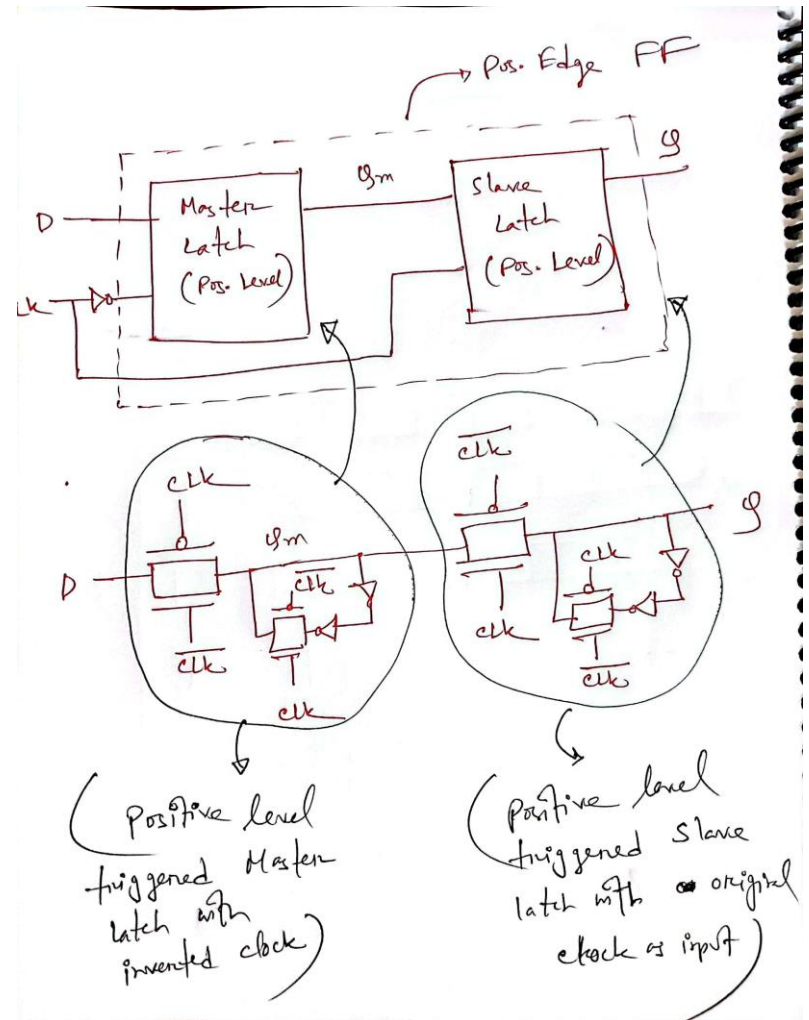 Pos. Edge FF
Qm
Q
D
Master
Latch
(Pos. Level)
Slave
Latch
(Pos. Level)
LK
CLK
Qm
D
CLK
CLK
CLK
CLK
Q
CLK
CLK
CLK
(Positive level
triggered Master
latch with
inverted clock)
(Positive level
triggered Slave
latch with original
clock as input)